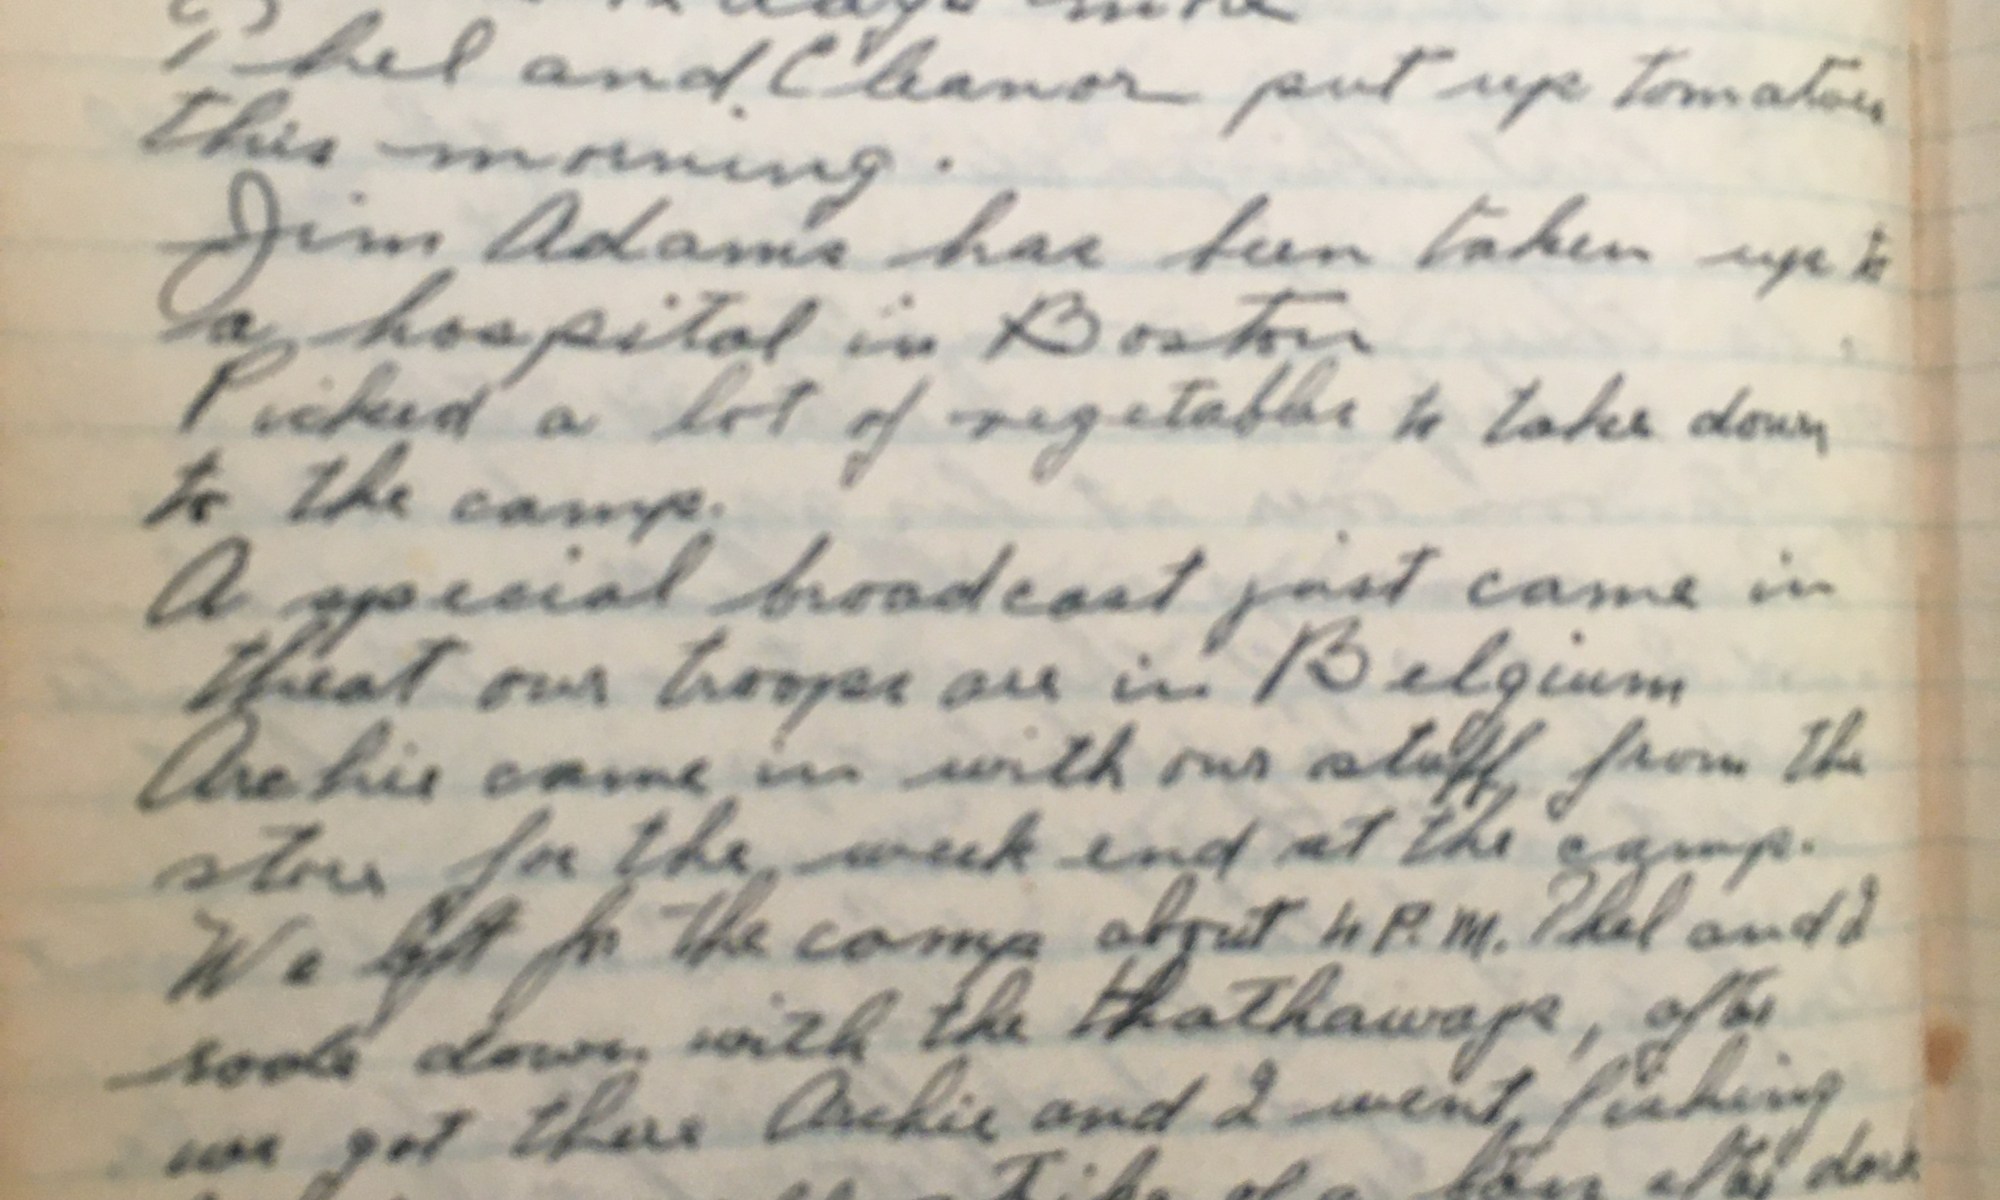 days more
Phel and Eleanor put up tomatoes
this morning.
Jim Adams has been taken up to
a hospital in Boston
Picked a lot of vegetables to take down
to the camp.
A special broadcast just came in
that our troops are in Belgium
Archie came in with our stuff from the
store for the week end at the camp.
We left for the camp about 4 P.M. Phel and I
rode down with the Hathaways, after
we got there Archie and I went fishing
strike of a bass after dark